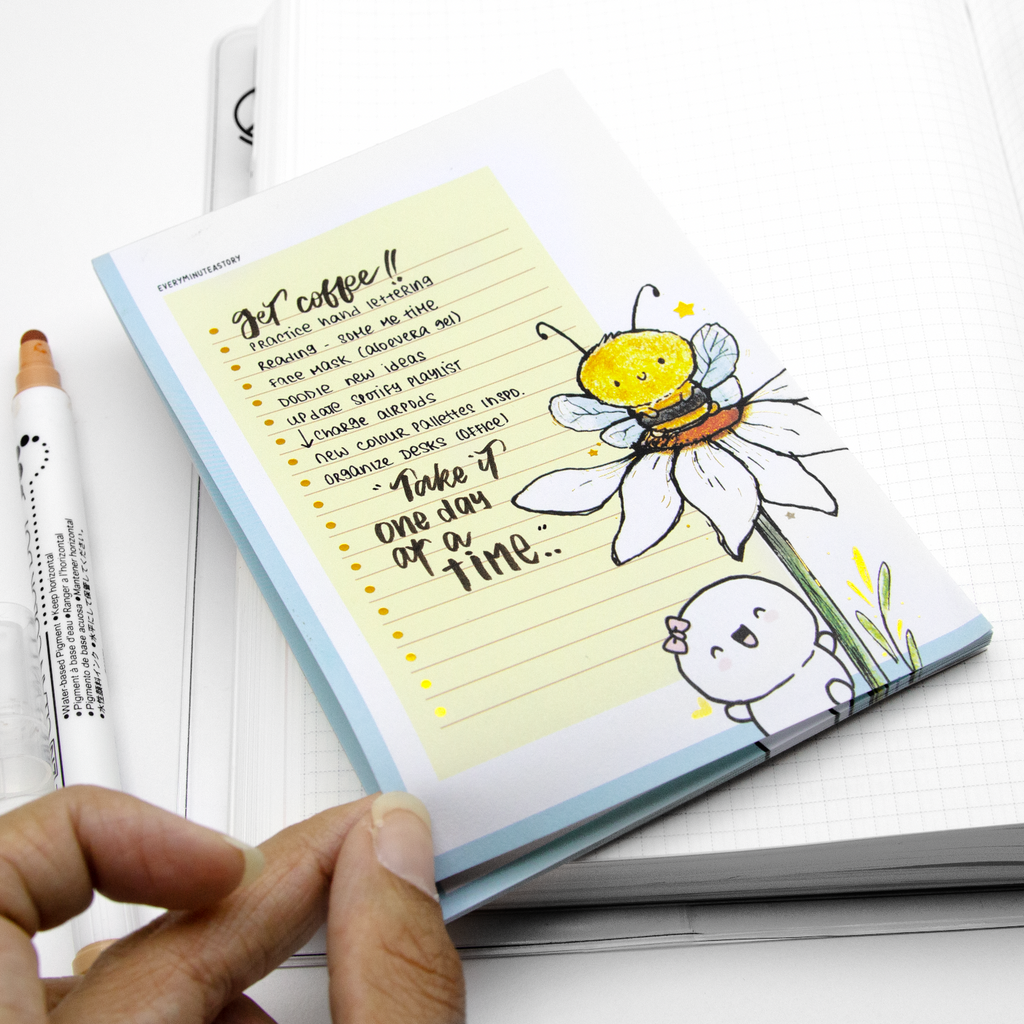 EVERYMINUTEASTORY
get coffee!!
PRACTICE hand lettering
Reading - some me time
FACE MASK (aloevera gel)
DOODLE new ideas
UPDATE SPOTIFY PLAYLIST
↓ CHARGE AIRPODS
new colour pallettes inspo.
ORGANIZE DESKS (OFFICE)
"Take it
one day
at a
time"..
•Water-based Pigment •Keep horizontal
•Pigment à base d'eau •Ranger à l'horizontal
•Pigmento de base acuosa •Mantener horizontal
•水性顔料インク •水平にして保管してください。